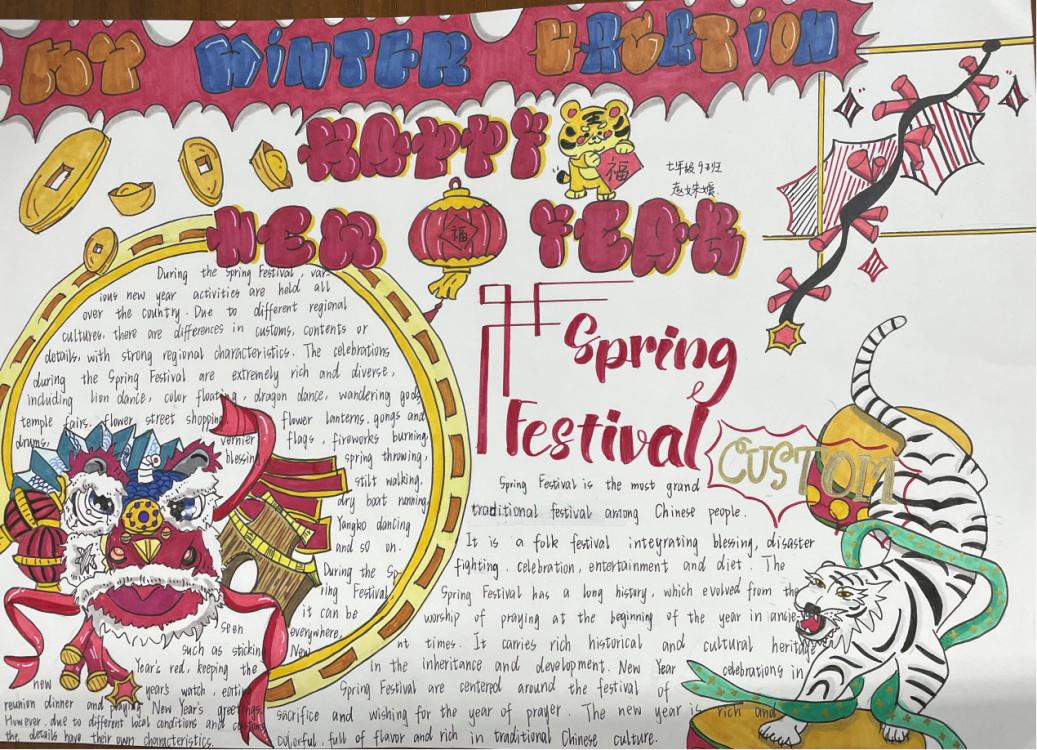 MY WINTER VACATION
HAPPY
福
七年级
NEW YEAR
福
During the Spring Festival, var-
ious new year activities are held all
over the country. Due to different regional
cultures, there are differences in customs, contents or
details, with strong regional characteristics. The celebrations
during the Spring Festival are extremely rich and diverse,
including lion dance, color floating, dragon dance, wandering gods
temple fairs, flower street shopping, flower lanterns, gongs and
drums, vernier flags, fireworks burning,
blessing spring throwing,
stilt walking,
dry boat running,
Yangko dancing
and so on.
During the Sp-
ring Festival
it can be
seen everywhere,
such as sticking New
Year's red, keeping the
new year's watch, eating
reunion dinner and praying New Year's greetings.
However, due to different local conditions and customs
the details have their own characteristics.
Spring
Festival
CUSTOM
Spring Festival is the most grand
traditional festival among Chinese people.
It is a folk festival integrating blessing, disaster
fighting, celebration, entertainment and diet. The
Spring Festival has a long history, which evolved from the
worship of praying at the beginning of the year in ancie-
nt times. It carries rich historical and cultural heritage
in the inheritance and development. New Year celebrations in
Spring Festival are centered around the festival of
sacrifice and wishing for the year of prayer. The new year is rich and
colorful, full of flavor and rich in traditional Chinese culture.